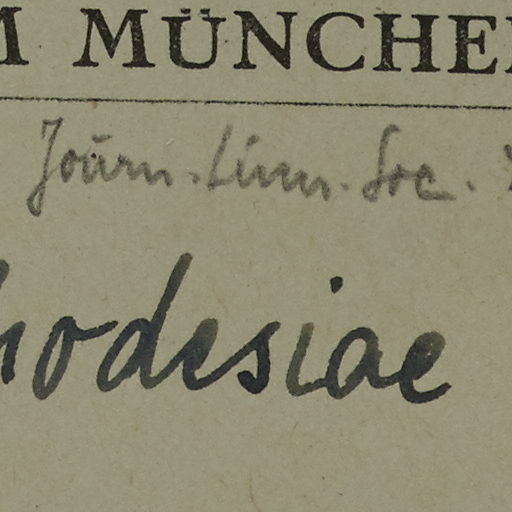 M MÜNCHE
Journ. Linn. Soc.
hodesiae